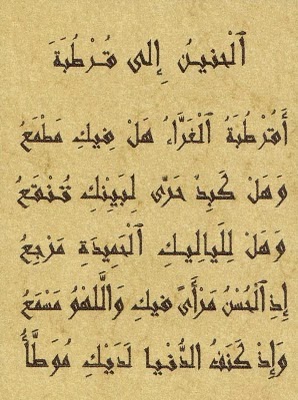 ٱلْحنينُ إِلى قُرْطُبَةَ
أَقُرْطُبَةُ ٱلْغَرَّاءُ هَلْ فِيكِ مَطْمَعُ
وَهَلْ كَبِدٌ حَرَّى لِبَيْنِكِ تُنْقَعُ
وَهَلْ لِلَيالِيكِ ٱلْحَمِيدَةِ مَرْجِعُ
إِذِ ٱلْحُسْنُ مَرْأًى فيكِ وَاللَّهْوُ مَسْمَعُ
وَإِذْ كَنَفُ الدُّنْيا لَدَيْكِ مُوَطَّأُ